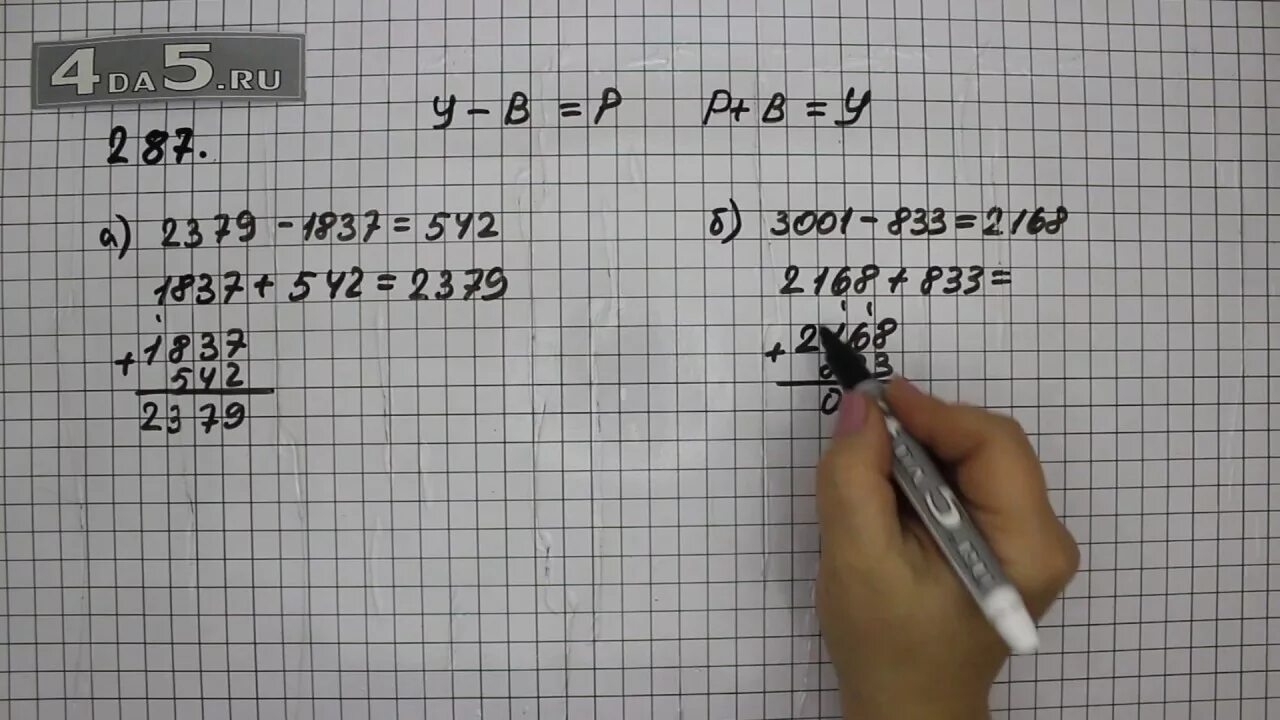 4DA5.RU
У - В = Р
Р + В = У
287.
а) 2379 - 1837 = 542
1837 + 542 = 2379
1
+ 1837
542
2379
б) 3001 - 833 = 2168
2168 + 833 =
1 1
+ 2168
3
0